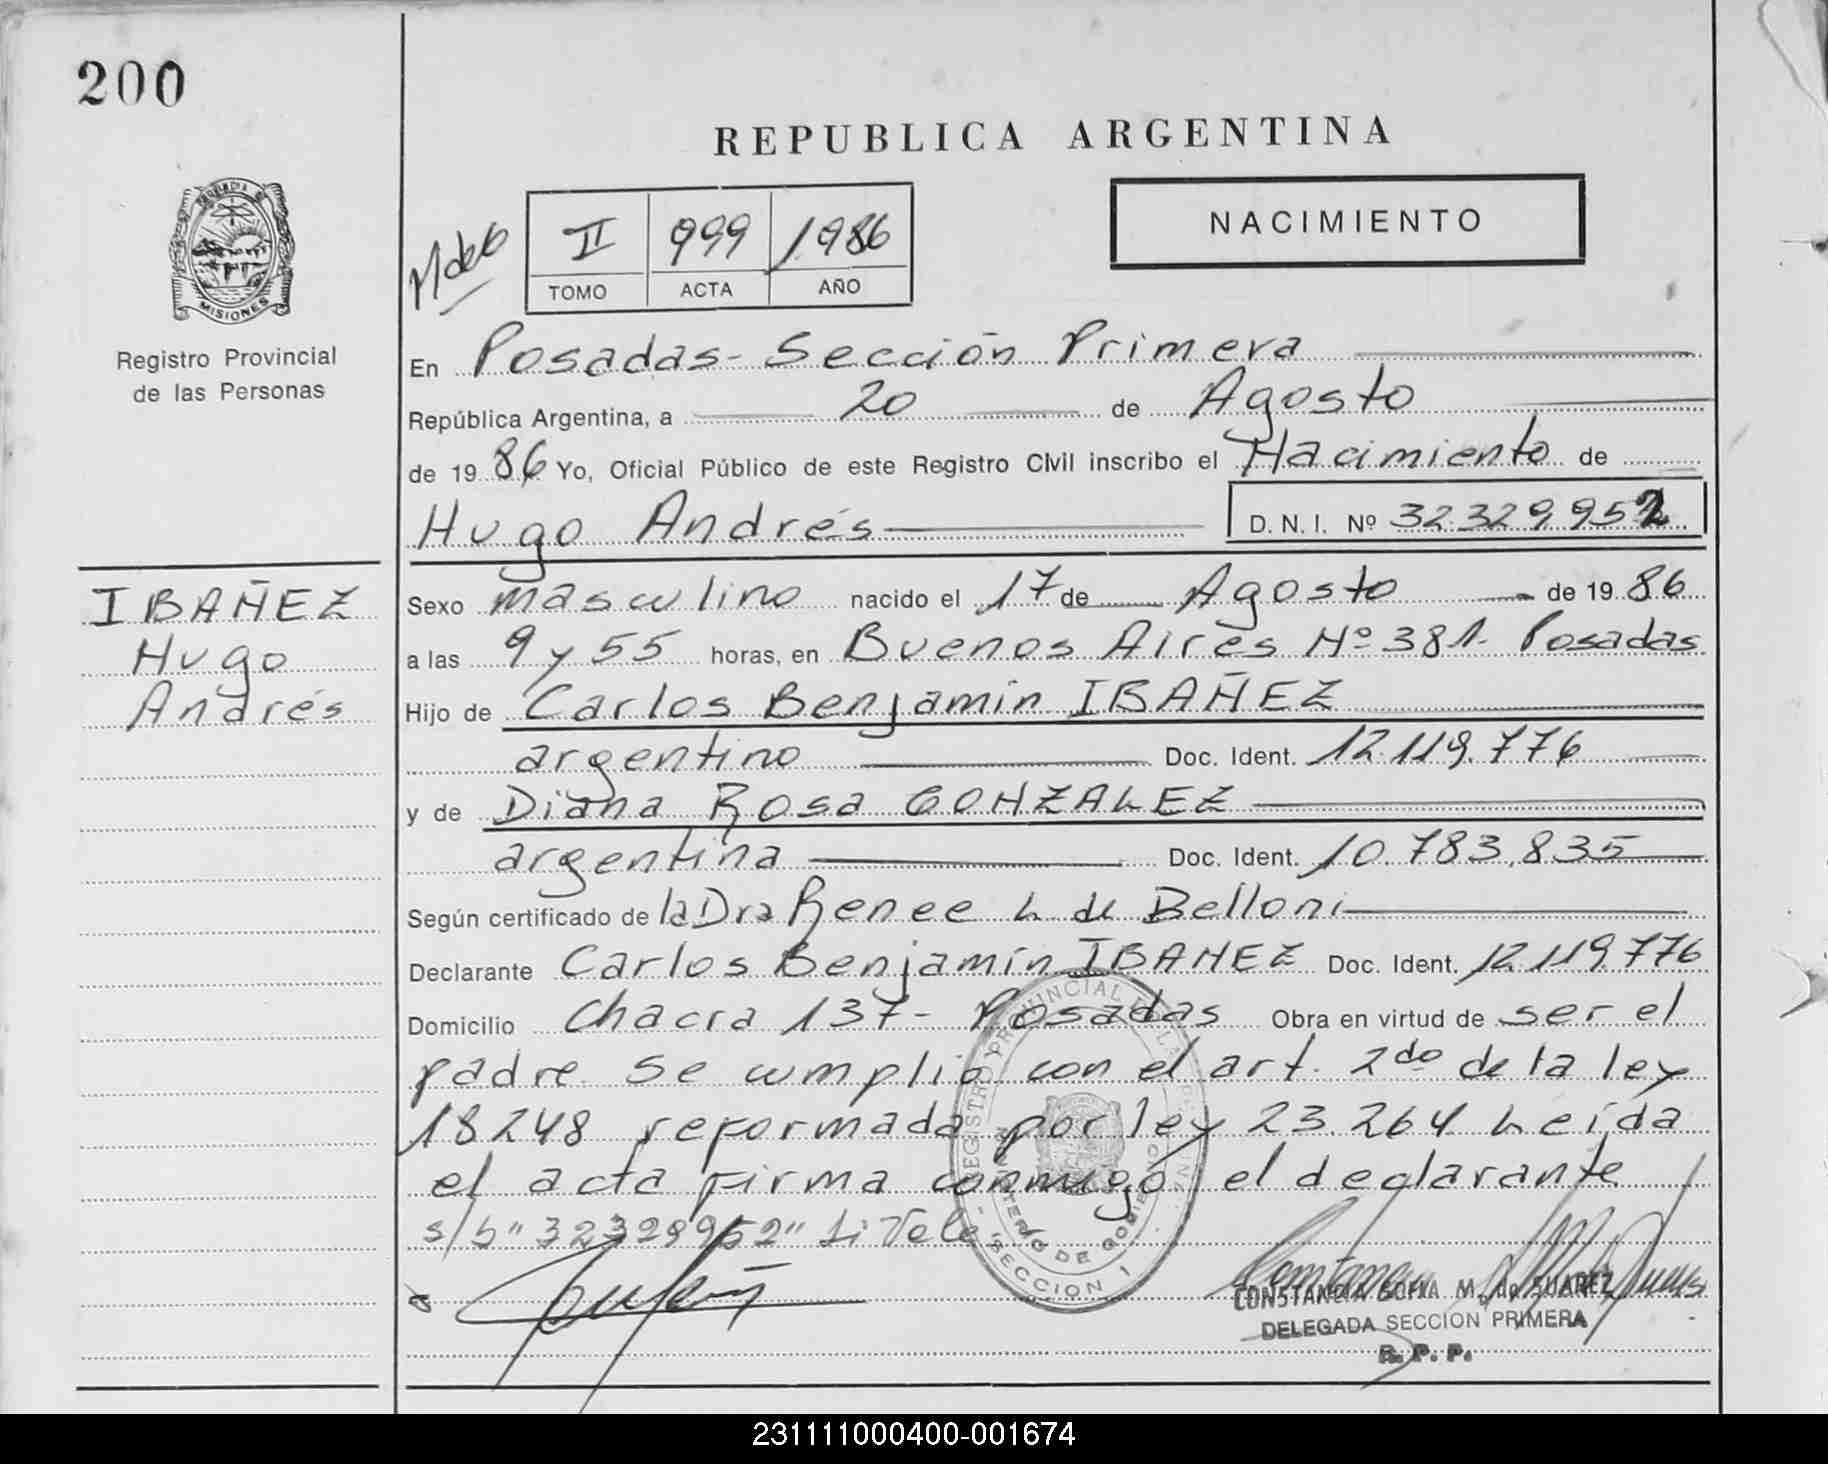 200
REPUBLICA ARGENTINA
NACIMIENTO
II 999 1986
TOMO ACTA AÑO
PROVINCIA DE MISIONES
Registro Provincial
de las Personas
En Posadas - Sección Primera
República Argentina, a 20 de Agosto
de 19 86 Yo, Oficial Público de este Registro Civil inscribo el Nacimiento de
Hugo Andrés D.N.I. Nº 32.329.952
IBAÑEZ
Hugo
Andrés
Sexo masculino nacido el 17 de Agosto de 19 86
a las 9 y 55 horas, en Buenos Aires Nº 381. Posadas
Hijo de Carlos Benjamín IBAÑEZ
argentino Doc. Ident. 12.119.776
y de Diana Rosa GONZALEZ
argentina Doc. Ident. 10.783.835
Según certificado de la Dra Renee L de Belloni
Declarante Carlos Benjamín IBAÑEZ Doc. Ident. 12.119.776
Domicilio Chacra 137 - Posadas Obra en virtud de ser el
padre. Se cumplió con el art. 2do de la ley
18248 reformada por ley 23.264 Leída
el acta firma conmigo el declarante
s/b "32329952" Si Vale
REGISTRO PROVINCIAL DE LAS PERSONAS
MINISTERIO DE GOBIERNO
- SECCION 1 -
CONSTANCIA SOFIA M. de SUAREZ
DELEGADA SECCION PRIMERA
R. P. P.
231111000400-001674